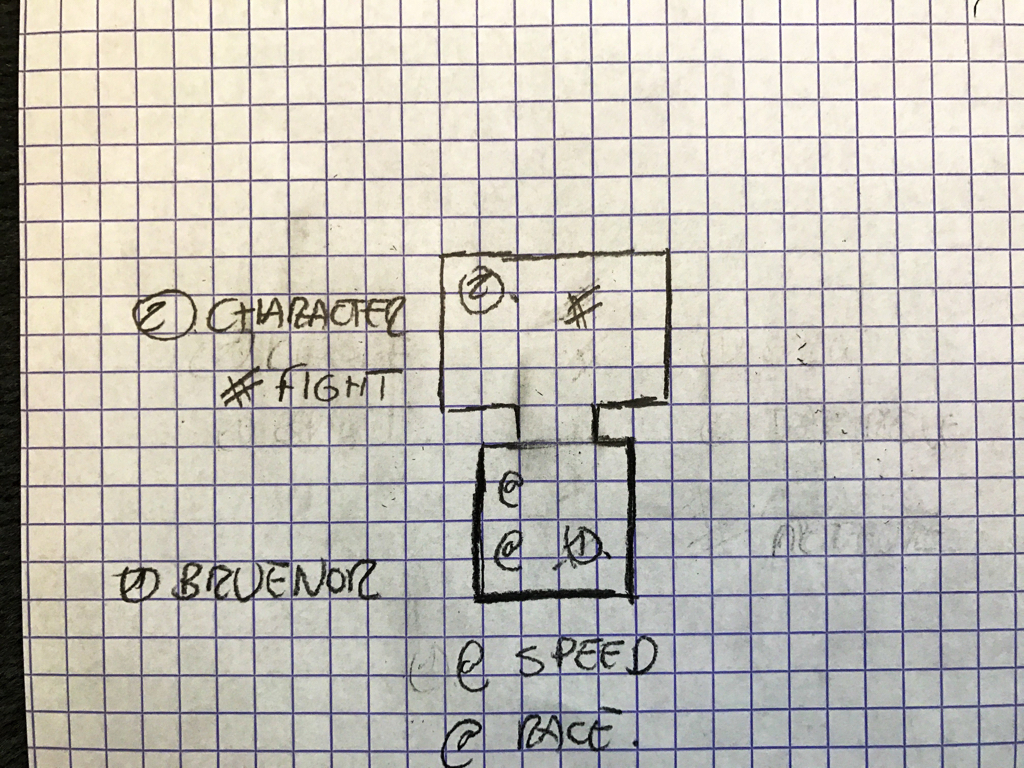 CHARACTER
# FIGHT
#
@
@
BRUENOR
@ SPEED
@ RACE.